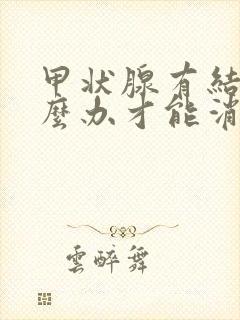 甲状腺有結
麼办才能消
雲醉舞